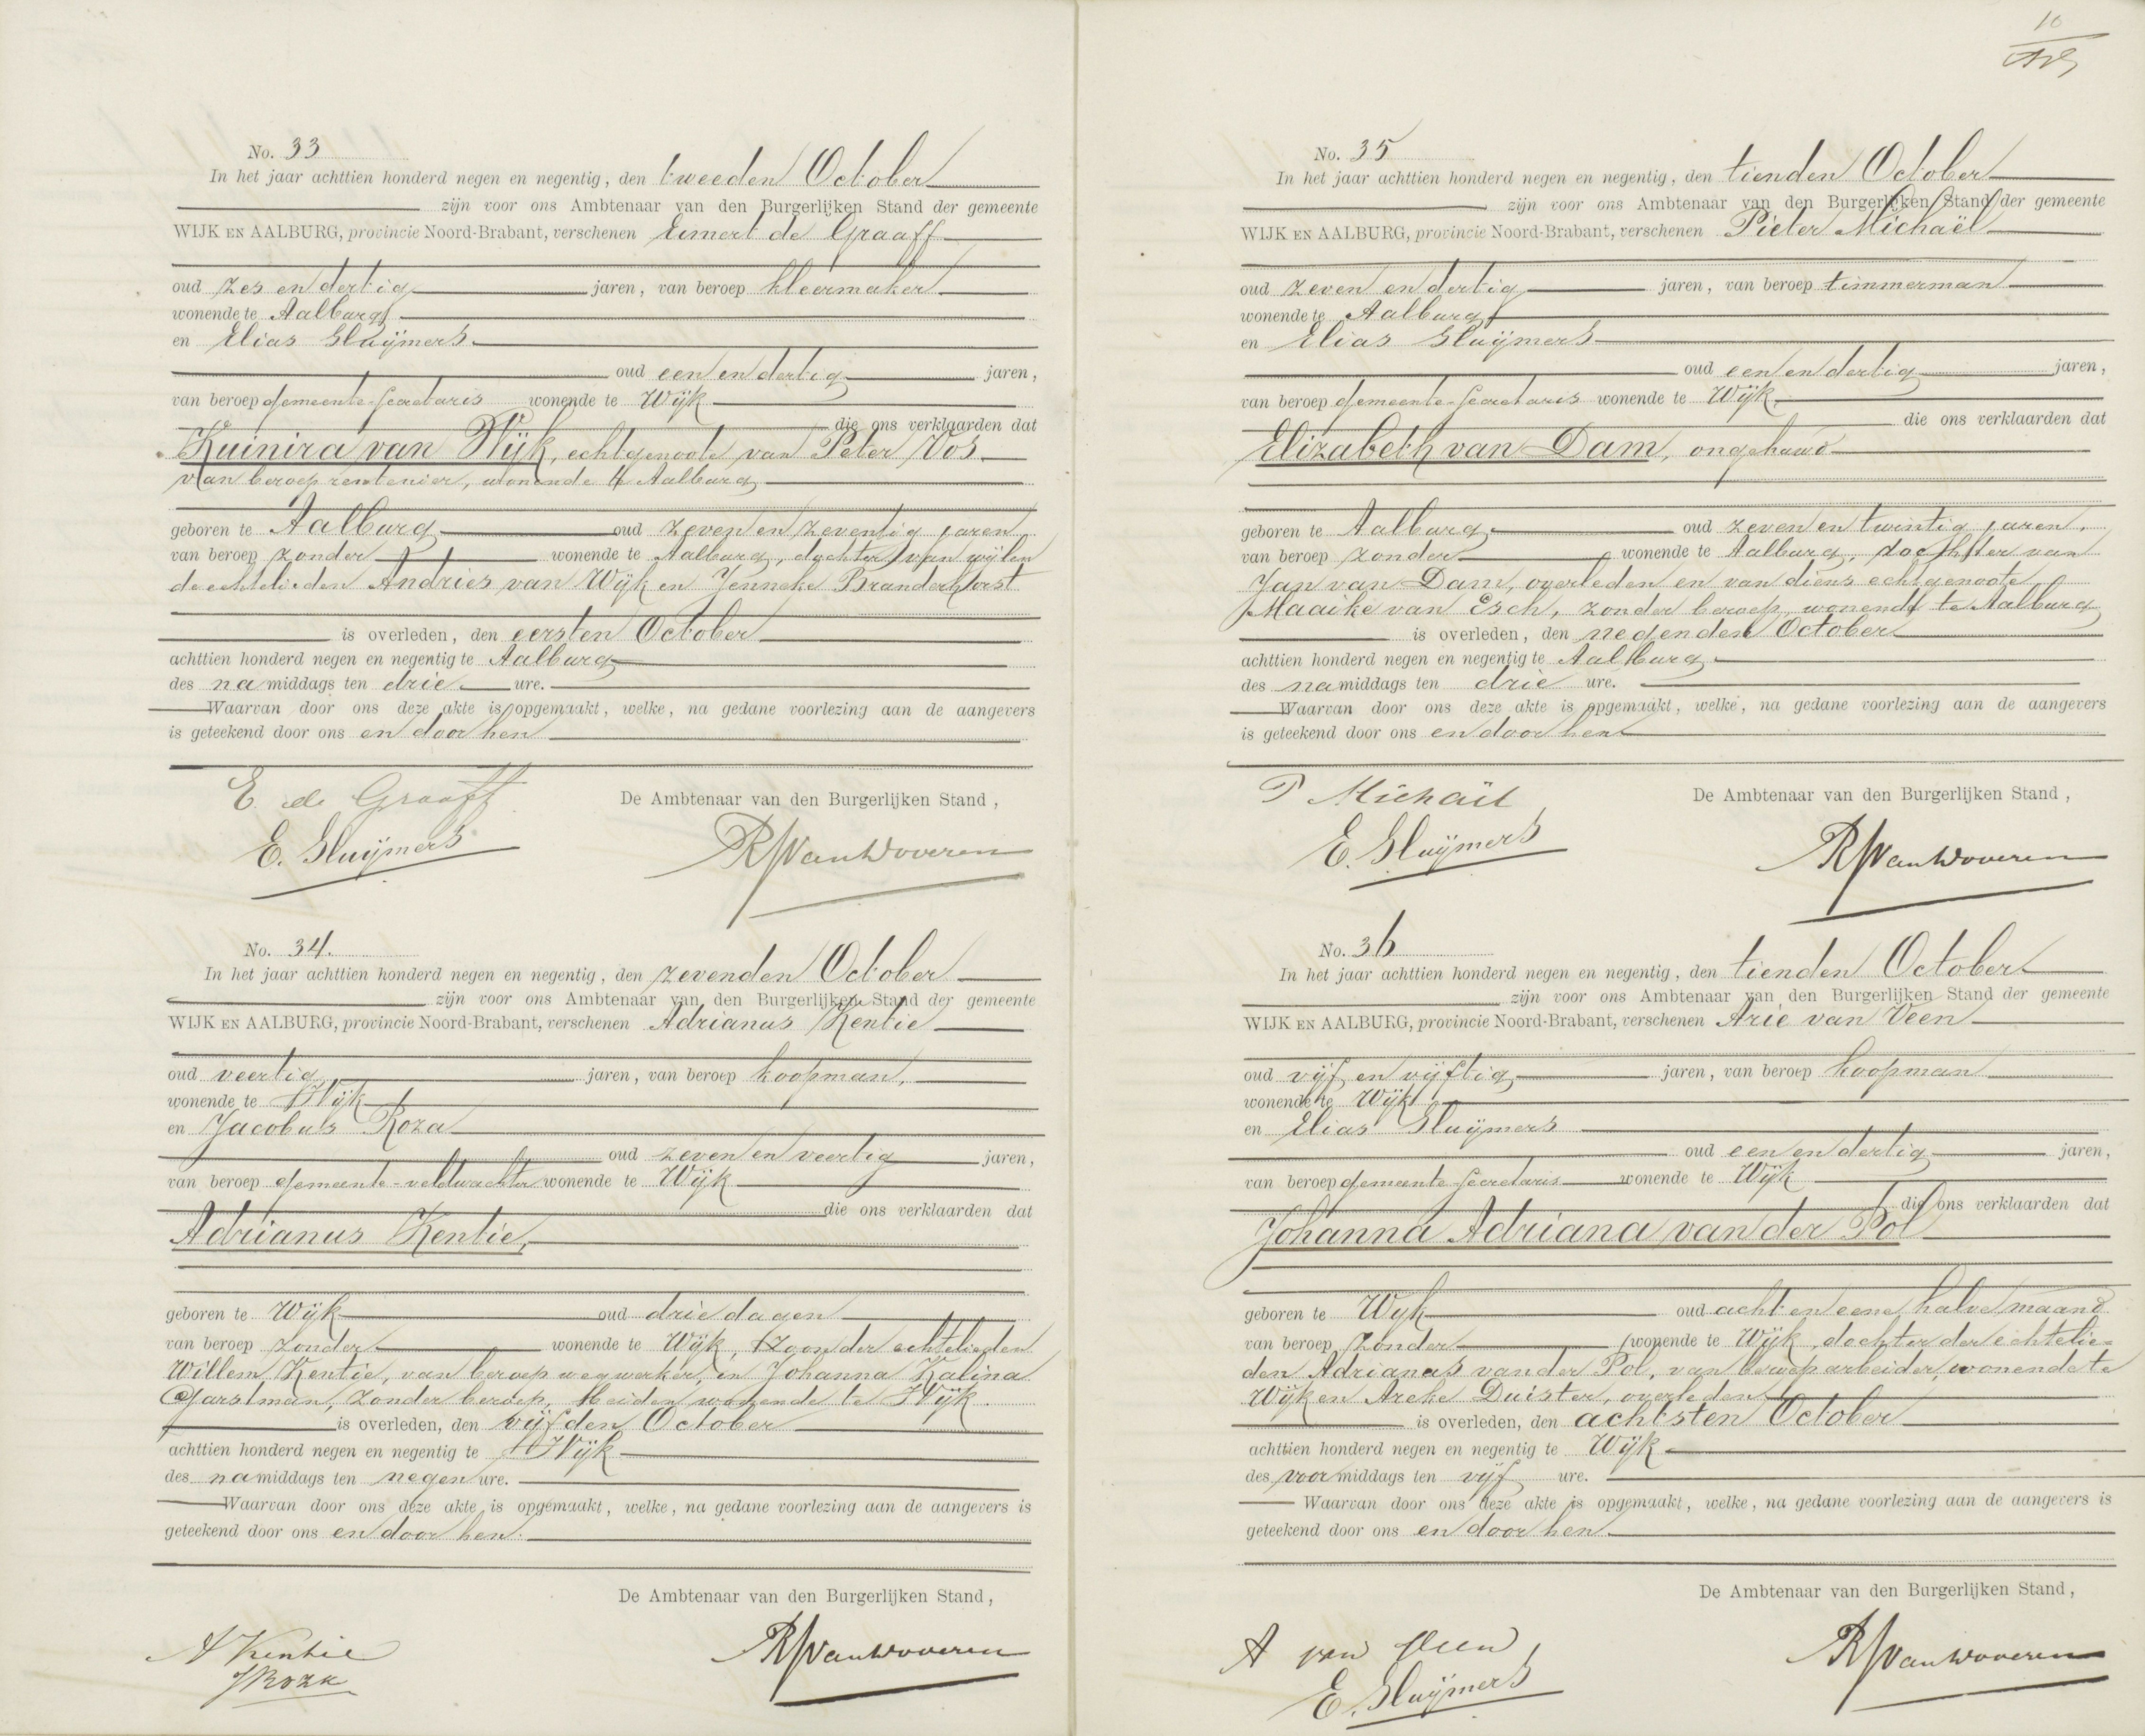 No. 33
In het jaar achttien honderd negen en negentig, den tweeden October
zijn voor ons Ambtenaar van den Burgerlijken Stand der gemeente
WIJK EN AALBURG, provincie Noord-Brabant, verschenen Eimert de Graaff
oud zes en dertig jaren, van beroep kleermaker
wonende te Aalburg
en Elias Sluijmers
oud een en dertig jaren,
van beroep gemeente-secretaris wonende te Wijk
die ons verklaarden dat
Kuinira van Wijk, echtgenoote van Peter Vos
van beroep rentenier, wonende te Aalburg
geboren te Aalburg oud zeven en zeventig jaren
van beroep zonder wonende te Aalburg, dochter van wijlen
de echtelieden Andries van Wijk en Jenneke Branderhorst
is overleden, den eersten October
achttien honderd negen en negentig te Aalburg
des namiddags ten drie ure.
Waarvan door ons deze akte is opgemaakt, welke, na gedane voorlezing aan de aangevers
is geteekend door ons en door hen
E. de Graaff
De Ambtenaar van den Burgerlijken Stand,
E. Sluijmers
RJvanWoveren
No. 34.
In het jaar achttien honderd negen en negentig, den zevenden October
zijn voor ons Ambtenaar van den Burgerlijken Stand der gemeente
WIJK EN AALBURG, provincie Noord-Brabant, verschenen Adrianus Kentie
oud veertig jaren, van beroep koopman,
wonende te Wijk
en Jacobus Roza
oud zeven en veertig jaren,
van beroep gemeente-veldwachter wonende te Wijk
die ons verklaarden dat
Adrianus Kentie,
geboren te Wijk oud drie dagen
van beroep zonder wonende te Wijk, zoon der echtelieden
Willem Kentie, van beroep wegwerker, en Johanna Kalina
Garstman, zonder beroep, beiden wonende te Wijk
is overleden, den vijfden October
achttien honderd negen en negentig te Wijk
des namiddags ten negen ure.
Waarvan door ons deze akte is opgemaakt, welke, na gedane voorlezing aan de aangevers is
geteekend door ons en door hen.
De Ambtenaar van den Burgerlijken Stand,
A Kentie
JRoza
RJvanWoveren
10
No. 35
In het jaar achttien honderd negen en negentig, den tienden October
zijn voor ons Ambtenaar van den Burgerlijken Stand der gemeente
WIJK EN AALBURG, provincie Noord-Brabant, verschenen Pieter Michaël
oud zeven en dertig jaren, van beroep timmerman
wonende te Aalburg
en Elias Sluijmers
oud een en dertig jaren,
van beroep gemeente-secretaris wonende te Wijk
die ons verklaarden dat
Elizabeth van Dam, ongehuwd
geboren te Aalburg oud zeven en twintig jaren,
van beroep zonder wonende te Aalburg, dochter van
Jan van Dam, overleden en van diens echtgenoote
Maaike van Esch, zonder beroep, wonende te Aalburg
is overleden, den negenden October
achttien honderd negen en negentig te Aalburg
des namiddags ten drie ure.
Waarvan door ons deze akte is opgemaakt, welke, na gedane voorlezing aan de aangevers
is geteekend door ons en door hen
P Michaël
De Ambtenaar van den Burgerlijken Stand,
E. Sluijmers
RJvanWoveren
No. 36
In het jaar achttien honderd negen en negentig, den tienden October
zijn voor ons Ambtenaar van den Burgerlijken Stand der gemeente
WIJK EN AALBURG, provincie Noord-Brabant, verschenen Arie van Veen
oud vijf en vijftig jaren, van beroep koopman
wonende te Wijk
en Elias Sluijmers
oud een en dertig jaren,
van beroep gemeente-secretaris wonende te Wijk
die ons verklaarden dat
Johanna Adriana van der Pol
geboren te Wijk oud acht en eene halve maand
van beroep zonder wonende te Wijk, dochter der echtelie-
den Adrianus van der Pol, van beroep arbeider, wonende te
Wijk en Areke Duister, overleden
is overleden, den achtsten October
achttien honderd negen en negentig te Wijk
des voormiddags ten vijf ure.
Waarvan door ons deze akte is opgemaakt, welke, na gedane voorlezing aan de aangevers is
geteekend door ons en door hen.
De Ambtenaar van den Burgerlijken Stand,
A van Veen
E. Sluijmers
RJvanWoveren